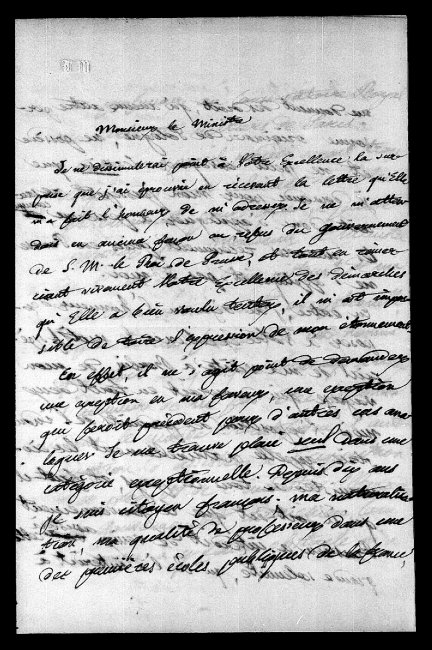 Monsieur le Ministre
Je ne dissimulerai point à Votre Excellence la sur-
prise que j'ai éprouvée en recevant la lettre qu'Elle
m'a fait l'honneur de m'adresser. Je ne m'atten-
dais en aucune façon au refus du Gouvernement
de S. M. le Roi de Prusse, et tout en remer-
ciant vivement Votre Excellence des démarches
qu'Elle a bien voulu tenter, il m'est impos-
sible de taire l'expression de mon étonnement.
En effet, il ne s'agit point de demander
une exception en ma faveur, une exception
qui feroit précédent pour d'autres cas ana-
logues. Je me trouve placé seul dans une
catégorie exceptionnelle. Depuis dix ans
je suis citoyen français. Ma naturalisa-
tion, ma qualité de professeur dans une
des premières écoles publiques de la France,